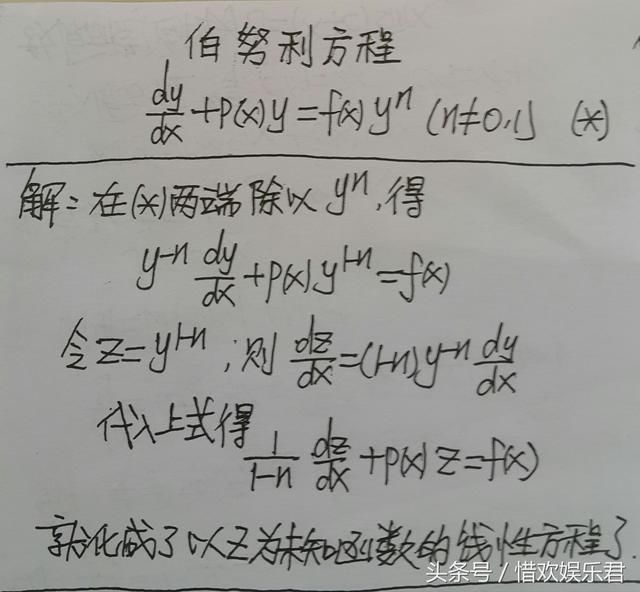 伯努利方程
dy/dx+p(x)y=f(x)yⁿ (n≠0,1) (*)
解:在(*)两端除以yⁿ,得
y⁻ⁿdy/dx+p(x)y¹⁻ⁿ=f(x)
令z=y¹⁻ⁿ,则dz/dx=(1-n)y⁻ⁿdy/dx
代入上式得
1/(1-n) dz/dx+p(x)z=f(x)
就化成了以z为未知函数的线性方程了.
头条号/惜欢娱乐君